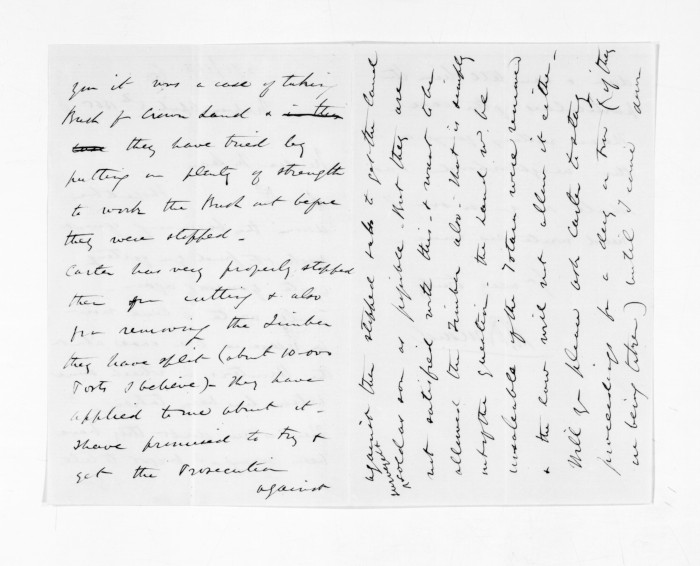 you it was a case of taking
Bush for Crown Land & in this
case they have tried by
putting on plenty of strength
to work the Bush out before
they were stopped -
Carter has very properly stopped
them from cutting & also
from removing the Timber
they have split (about 10.000
Posts I believe) - They have
applied to me about it -
I have promised to try &
get the Prosecution
against
against them stopped & to get the land
surveyed
& sold as soon as possible - But they are
not satisfied with this - & want to be
allowed the Timber also - that is simply
out of the question - the land wd be
unsaleable if the Totara were removed
& the law will not allow it either -
Will you please ask Carter to stay
proceedings for a day or two (if they
are being taken) until I come down